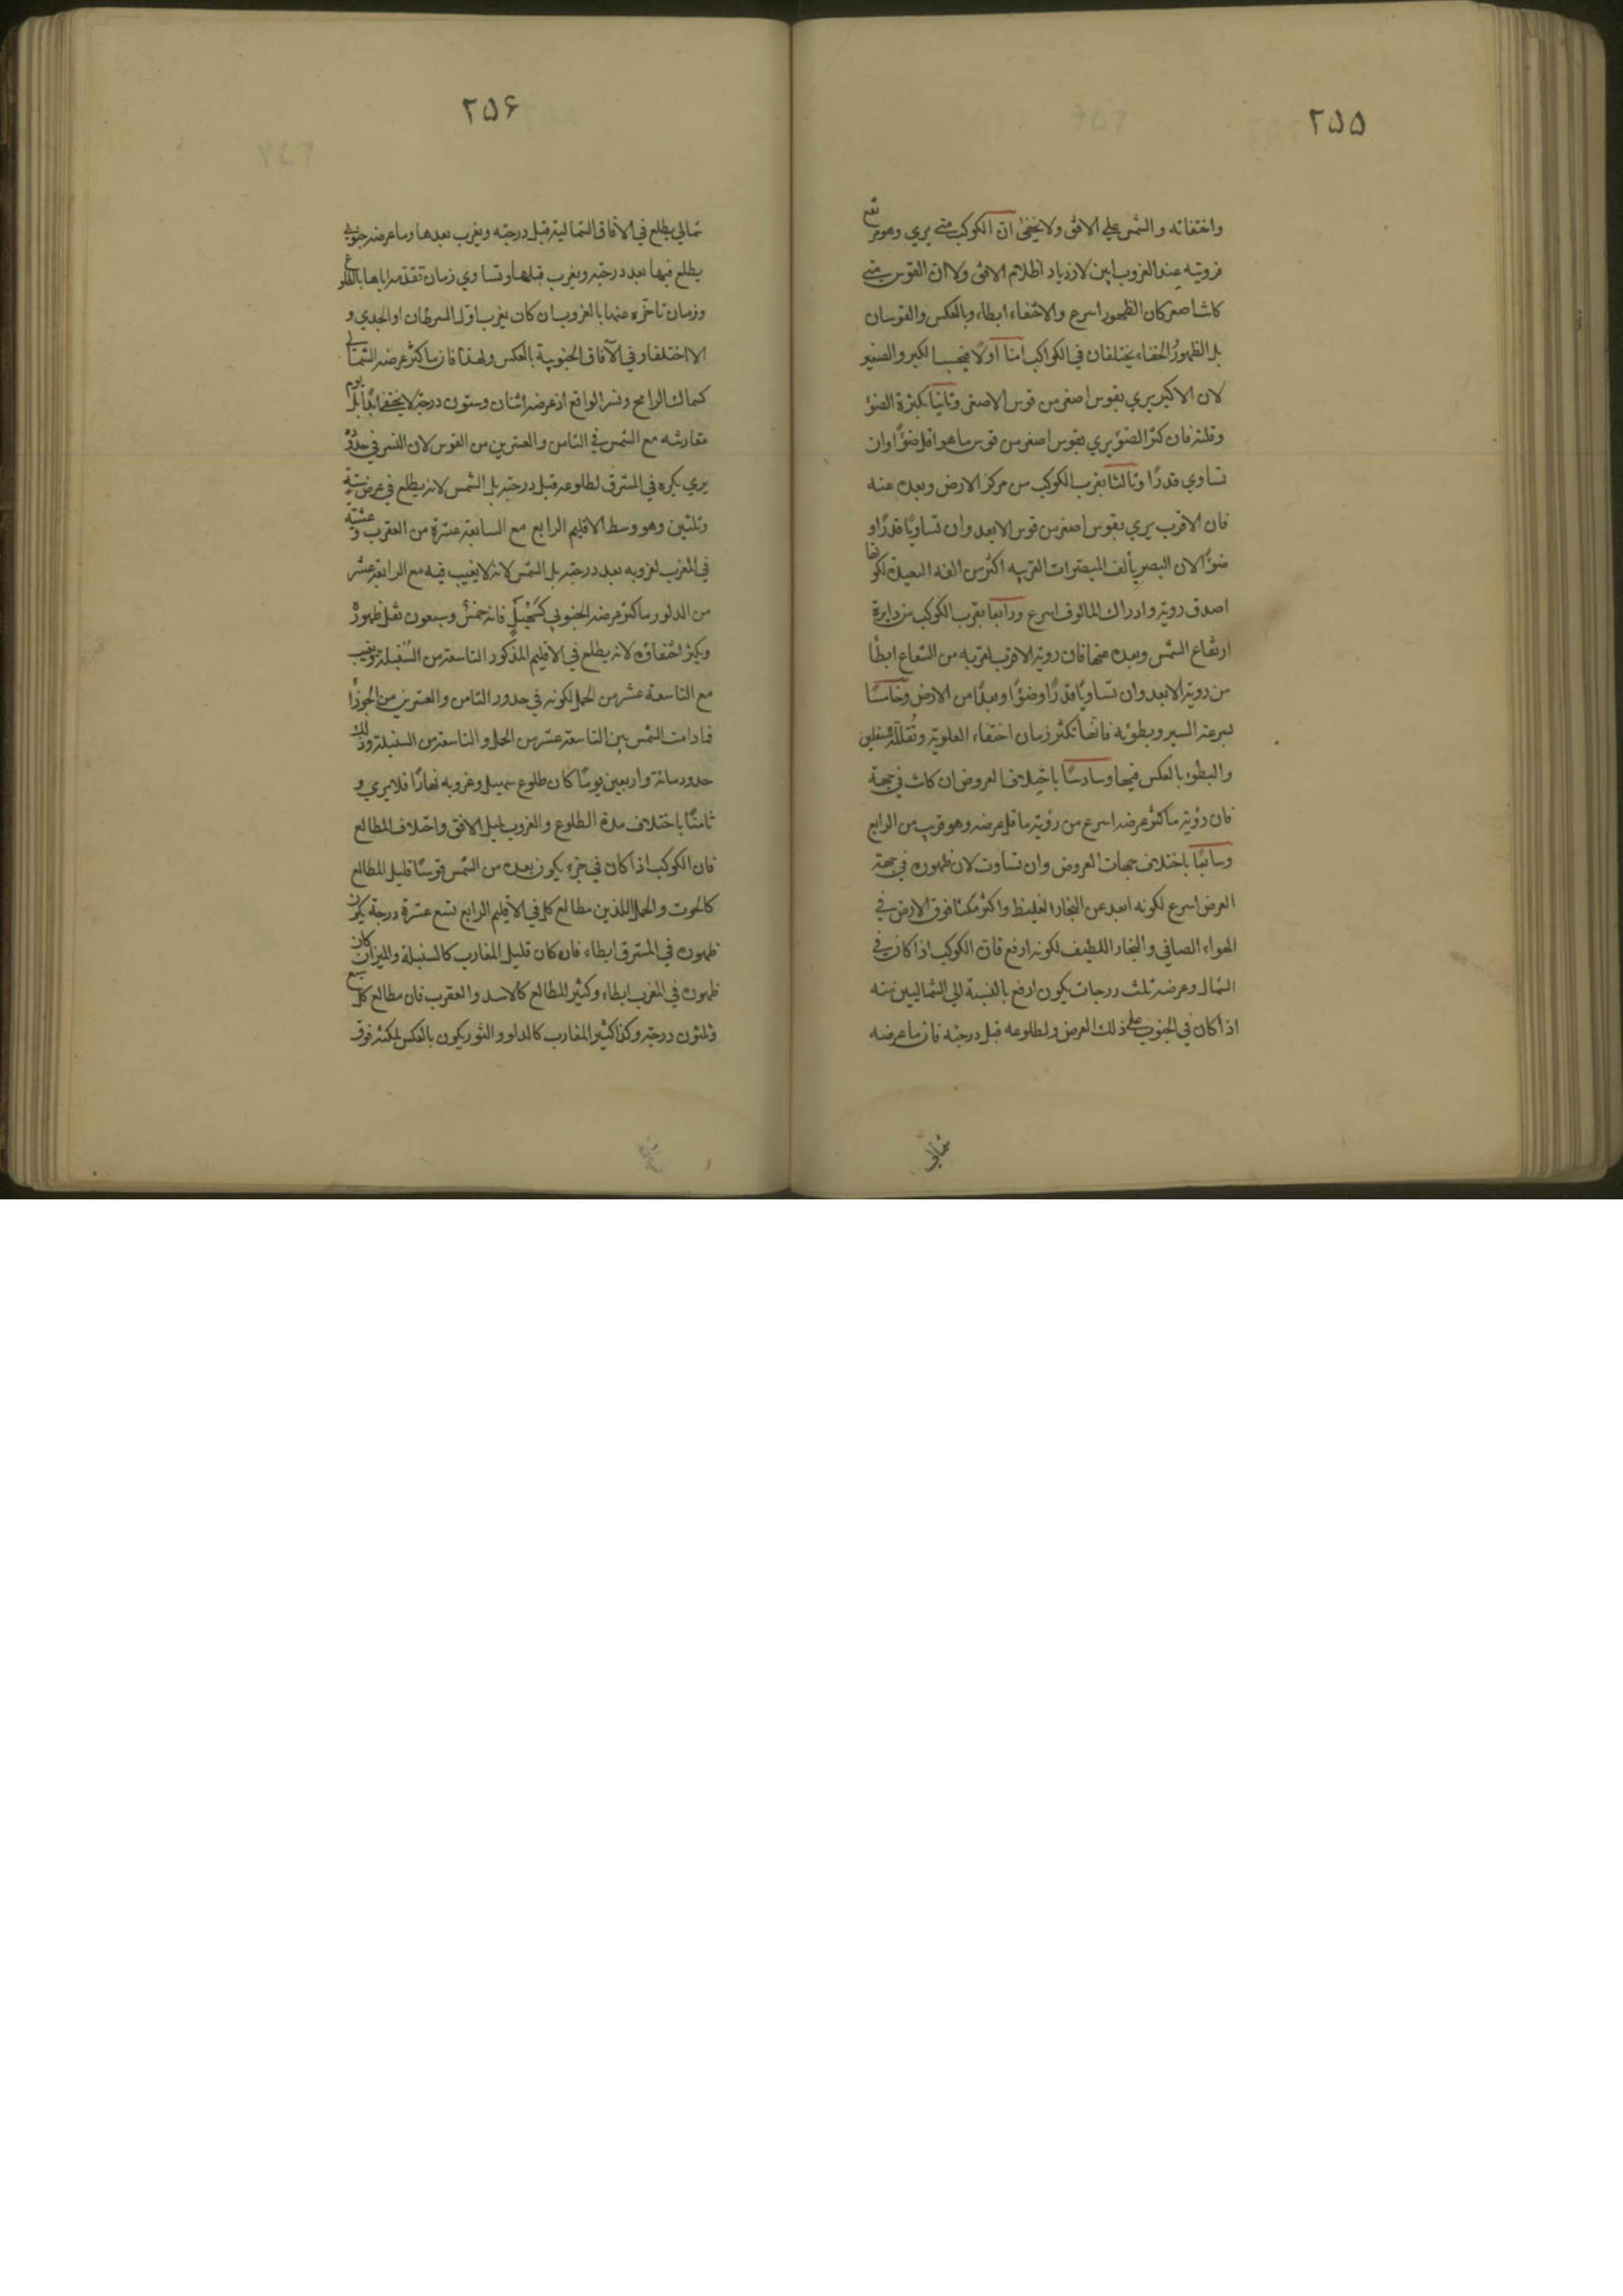 ۲۵۵
واختفائه والشمس على الافق ولا يخفى ان الكوكب متى يرى وهو مرتفع
فرؤيته عند الغروب ابين لازدياد اظلام الافق ولا ان القوس متى
كانت اصغر كان الظهور اسرع والاختفاء ابطاء وبالعكس والقوسان
بل الظهور والخفاء يختلفان في الكواكب اما اولا فبحسب الكبر والصغر
لان الاكبر يرى بقوس اصغر من قوس الاصغر وثانيا بكثرة الضوء
وقلته فان كثر الضوء يرى بقوس اصغر من قوس ما هو اقل ضوءًا وان
تساوي قدرًا وثالثا بقرب الكوكب من مركز الارض وبعده عنه
فان الاقرب يرى بقوس اصغر من قوس الابعد وان تساويا قدرًا و
ضوءًا لان البصر يألف المبصرات القريبه اكثر من الفه البعيدة لكونها
اصدق رويه وادراك المالوف اسرع ورابعا بقرب الكوكب من دايرة
ارتفاع الشمس وبعده عنها فان روية الاقرب لقربه من الشعاع ابطأ
من روية الابعد وان تساويا قدرًا وضوءًا وبعدًا من الارض وخامسًا
لسرعة السير وبطوئه فانها تكثر زمان اختفاء العلوية وتُقلل السفلين
والبطوء بالعكس فيها وسادسًا باختلاف العروض ان كانت في جهة
فان رؤية ما كثر عرضه اسرع من رؤية ما قل عرضه وهو قريب من الرابع
وسابعًا باختلاف جهات العروض وان تساوت لان ظهوره في جهة
العرض اسرع لكونه ابعد عن البخار الغليظ واكثر مكثا فوق الارض في
الهواء الصافي والبخار اللطيف لكونه ارفع فان الكوكب اذا كان في
الشمال وعرضه ثلث درجات يكون ارفع بالنسبة الى الشماليين منه
اذا كان في الجنوب على ذلك العرض ولطلوعه قبل درجته فان ما عرضه
شمالي
۲۵۶
شمالي يطلع في الآفاق الشمالية قبل درجته ويغرب بعدها وما عرضه جنوبي
يطلع فيها بعد درجته ويغرب قبلها وتساوي زمان تقدمه اياها بالطلوع
وزمان تاخره عنها بالغروب ان كان بقرب اول السرطان او الجدي و
الا اختلفا وفي الآفاق الجنوبية بالعكس ولهذا فان ما كثر عرضه الشمالي
كسماك الرامح ونسر الواقع اذ عرضه اثنان وستون درجة لا يختفي ابدًا بل يوم
مقارنته مع الشمس في الثامن والعشرين من القوس لان النسر في حدوده
يرى بكره في المشرق لطلوعه قبل درجته بل الشمس لانه يطلع في عرض ستة
وثلثين وهو وسط الاقليم الرابع مع السابعة عشرة من العقرب وعشية
في المغرب لغروبه بعد درجته بل الشمس لانه لا يغيب فيه مع الرابعة عشر
من الدلو وما كثر عرضه الجنوبي كسُهَيْلٍ فانه خمس وسبعون تقل ظهوره
ويكثر اختفاؤه لانه يطلع في الاقليم المذكور التاسعة من السُنبلة ويغيب
مع التاسعة عشر من الحمل لكونه في حدود الثامن والعشرين من الجوزا
فما دامت الشمس بين التاسعة عشر من الحمل والتاسعة من السنبلة وذلك
حدود مائة واربعين يومًا كان طلوع سهيل وغروبه نهارًا فلا يرى و
ثامنًا باختلاف مدة الطلوع والغروب لميل الافق واختلاف المطالع
فان الكوكب اذا كان في جزء يكون بعده من الشمس قوسًا قليل المطالع
كالحوت والحمل اللذين مطالع كل في الاقليم الرابع تسع عشرة درجة يكون
ظهوره في المشرق ابطاء فان كان قليل المغارب كالسنبلة والميزان كان
ظهوره في المغرب ابطاء وكثير المطالع كالاسد والعقرب فان مطالع كل سبع
وثلثون درجة وكذا كثير المغارب كالدلو والثور يكون بالعكس لمكثه فوق